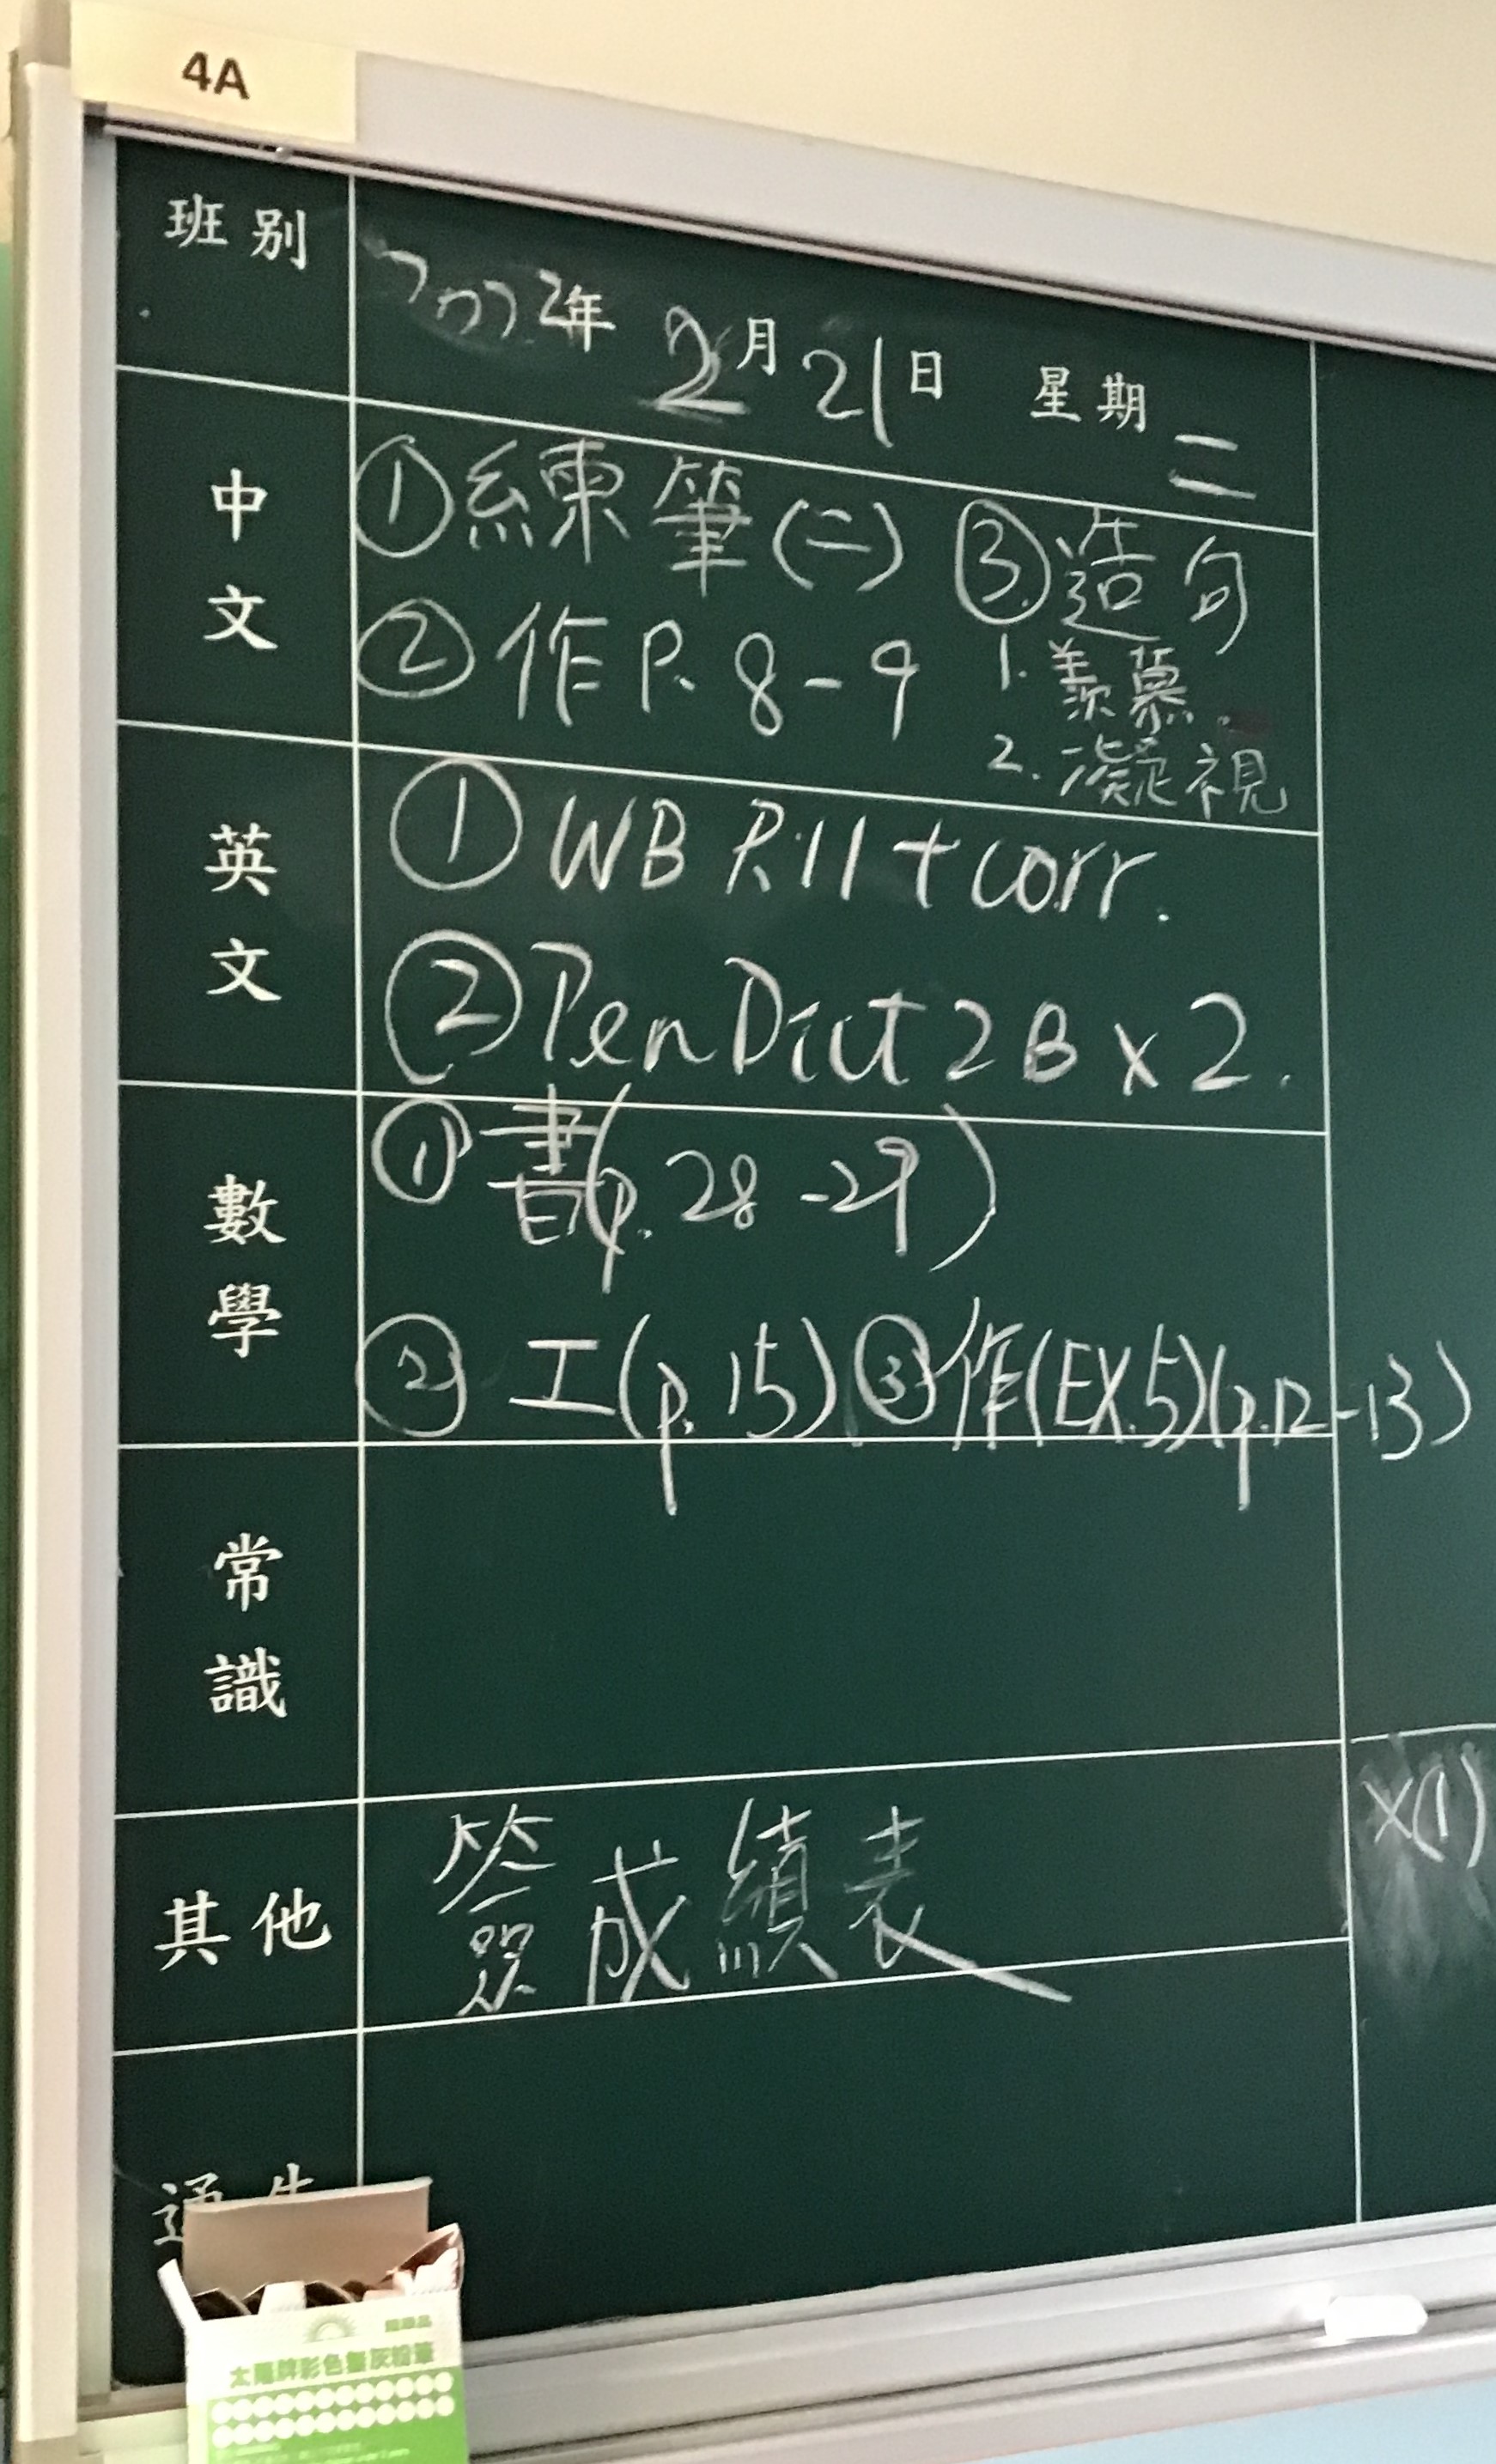 4A
班別
2022年 2月21日 星期二
中文
①練筆(二) ③造句
②作P. 8-9 1. 羨慕
2. 凝視
英文
① WB P.11 + corr.
② Pen Dict 2B x 2.
數學
① 書(p. 28-29)
② 工(p. 15) ③作(EX.5)(p.12-13)
常識
X(1)
其他
簽成績表
通告
太陽牌彩色無灰粉筆